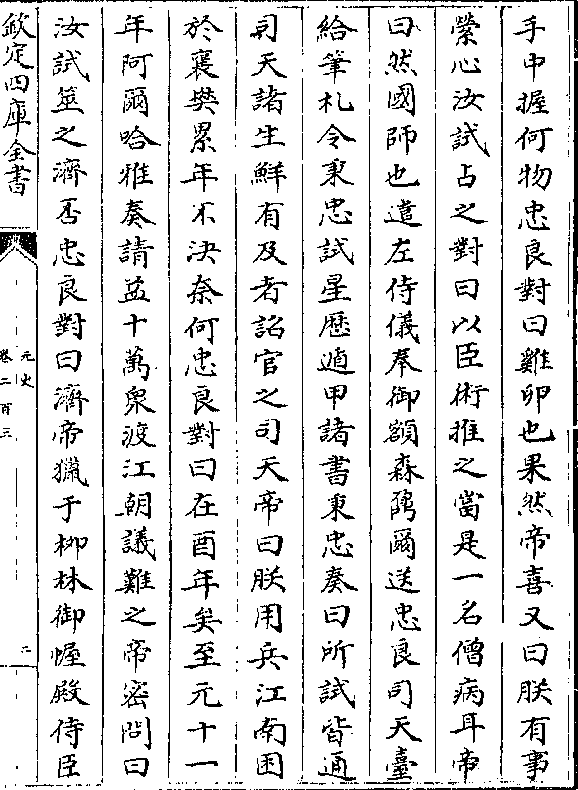 手中握何物忠良對曰雞卵也果然帝喜又曰朕有事
縈心汝試占之對曰以臣術推之當是一名僧病耳帝
曰然國師也遣左侍儀奉御額森鄂爾送忠良司天臺
給筆札令秉忠試星歷遁甲諸書秉忠奏曰所試皆通
司天諸生鮮有及者詔官之司天帝曰朕用兵江南困
於襄樊累年不決奈何忠良對曰在酉年矣至元十一
年阿爾哈雅奏請益十萬衆渡江朝議難之帝密問曰
汝試筮之濟否忠良對曰濟帝獵于柳林御幄殿侍臣
欽定四庫全書
元史
卷二百三
二